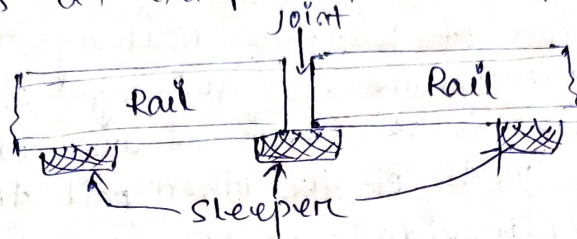 Joint
Rail
Rail
Sleeper